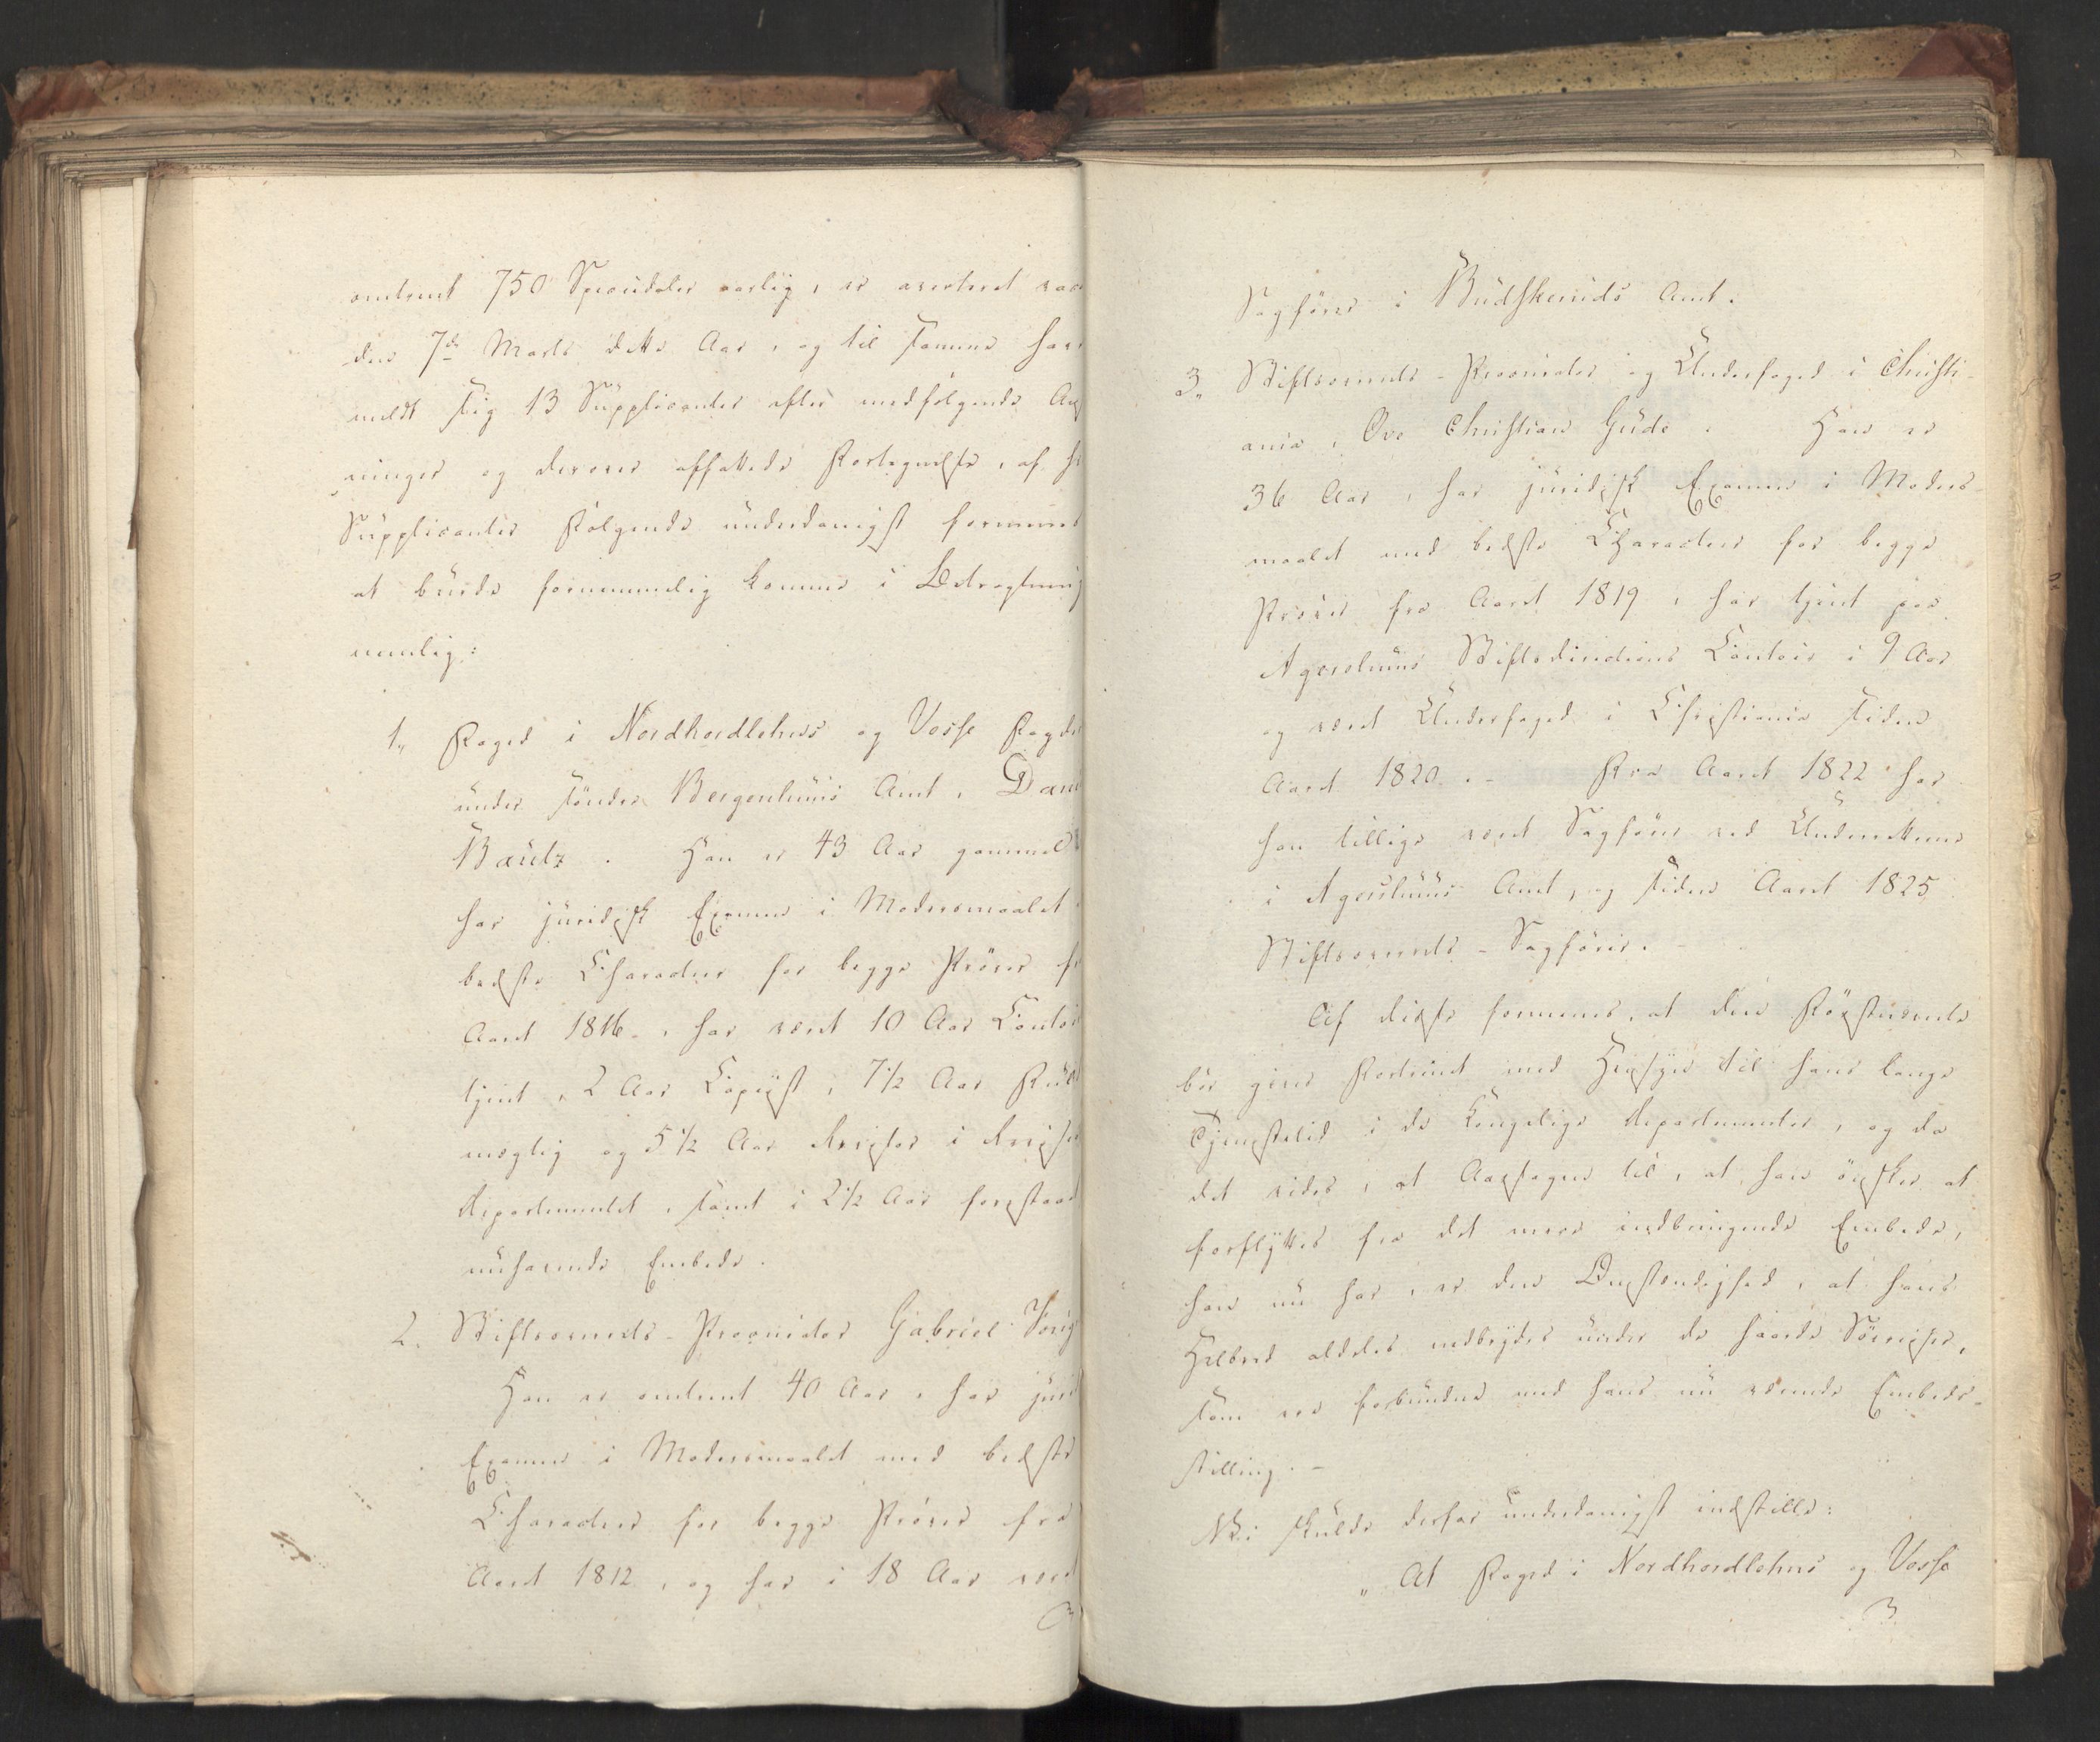 omtrent 750 Speciedaler aarlig, er averteret vac
den 7de Marts dette Aar, og til samme har
meldt sig 13 Supplicanter efter medfølgende An
ninger og derover affattede Fortegnelse, af h
Supplicanter Følgende underdanigst formenes
at burde fornemmelig komme i Betragtning
nemlig:
1, Foged i Nordhordlehns og Vosse Fogde
under søndre Bergenhuus Amt,
Bautz. Han er 43 Aar gammel
har juridisk Examen i Modersmaalet
bedste Charakteer for begge Prøver fr
Aaret 1816, har været 10 Aar Contoir
tjent, 2 Aar Copiist, 7 1/2 Aar Fuld
mægtig og 5 1/2 Aar Revisor i Revisions
departementet, samt i 2 1/2 Aar forestaaet
nuhavende Embede.
2. Stiftsoverrets-Procurator Gabriel
Han er omtrent 40 Aar, har juri
Examen i Modersmaalet med bedste
Charakteer for begge Prøver fra
Aaret 1812, og har i 18 Aar været
Sagfører i Budskeruds Amt.
3, Stiftsoverrets-Procurator og Underfoged i Christi-
ania, Ove Christian Gude. Han er
36 Aar, har juridisk Examen i Moders-
maalet med bedste Charakteer for begge
Prøver fra Aaret 1819, har tjent paa
Agershuus Stiftsdirections Contoir i 9 Aar
og været Underfoged i Christiania siden
Aaret 1820. - Fra Aaret 1822 har
han tillige været Sagfører ved Underretterne
i Agershuus Amt, og siden Aaret 1825
Stiftsoverrets-Sagfører. -
Af disse formenes, at den Førstnævnte
bør gives Fortrinet med Hensyn til hans lange
Tjenestetid i de Kongelige Departementer, og da
det vides, at Aarsagen til, at han ønsker at
forflyttes fra det mere indbringende Embede,
han nu har, er den Omstændighed, at hans
Helbred aldeles nedbrydes under de haarde Søreiser,
som ere forbundne med hans nu værende Embeds-
stilling. -
Vi skulde derfor underdanigst indstille:
„At Foged i Nordhordlehns og Vosse